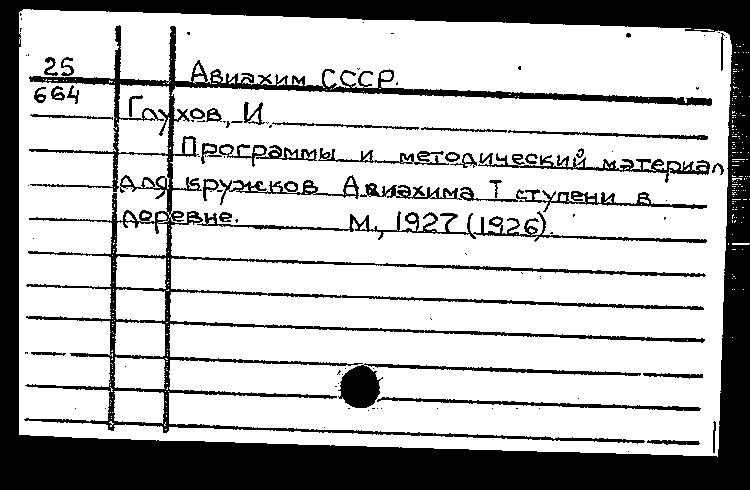 25 Авиахим СССР.
664 Глухов, И.
Программы и методический материал
для кружков Авиахима I ступени в
деревне. М., 1927 (1926).